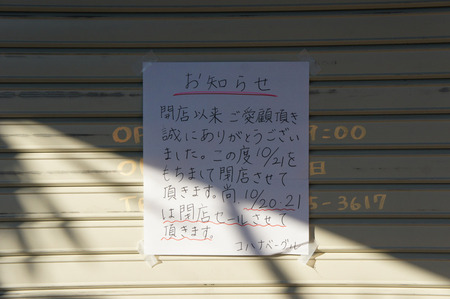 お知らせ
開店以来ご愛顧頂き
誠にありがとうござい
ました。この度10/21を
もちまして閉店させて
頂きます。尚、10/20.21
は閉店セールさせて
頂きます。
コハナベーグル
OP 9:00
O 日
T 5-3617